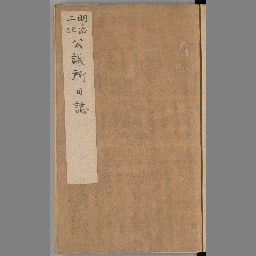 明治
二己
公議所日誌